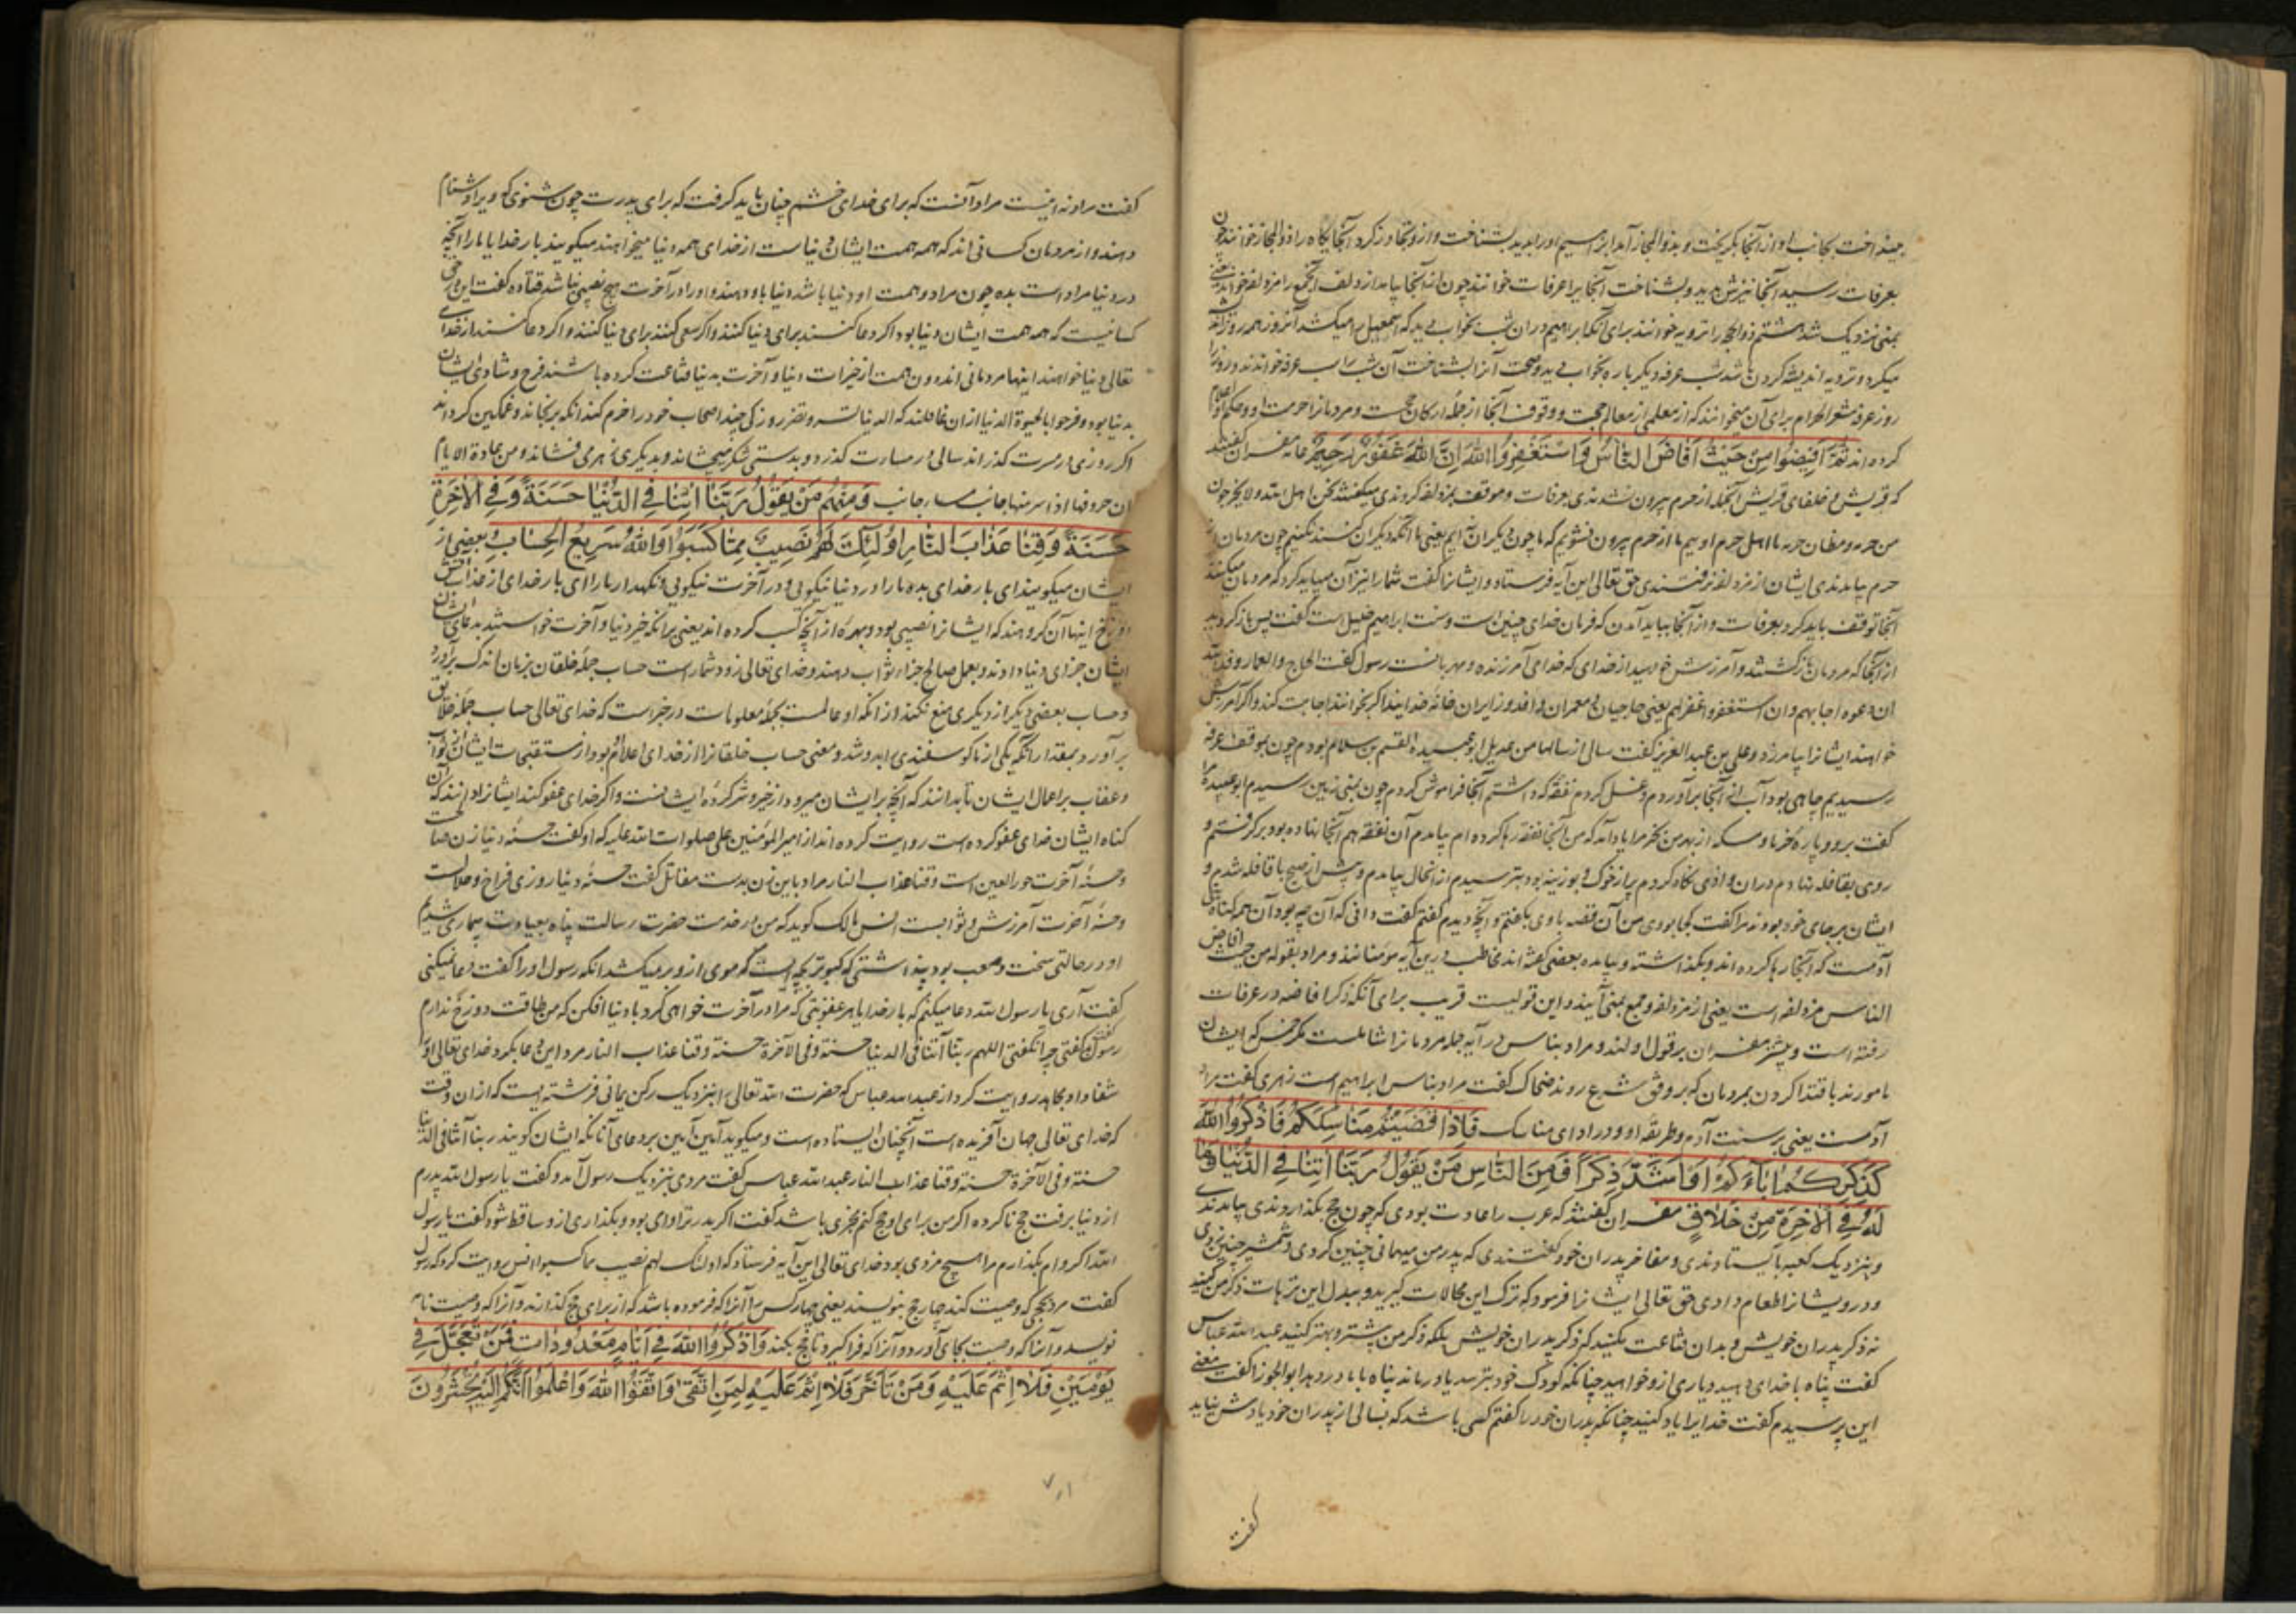 بینداخت بجانب او از آنجا بگریخت و بذوالمجاز آمد ابراهیم او را بدید بشناخت و از و تجاوز کرد آنجایگاه را ذوالمجاز خواندند چون
بعرفات رسید آنجا نیزش بدید و بشناخت آنجا را عرفات خواندند چون از آنجا بیامد ازدلف الجمع را مزدلفه خواندند
بمنی نزدیک شد هشتم ذوالحجه را ترویه خوانند برای آنکه ابراهیم در آن شب بخواب دید که اسمعیل را میکشد آنروز همه روز اندیشه
میکرد و ترویه اندیشه کردن باشد شب عرفه دیگر باره بخواب دید و صحت آنرا بشناخت آن شب را شب عرفه خواندند و روز را
روز عرفه مشعر الحرام برای آن میخوانند که از معلمی از معالم حج است و وقوف آنجا از جمله ارکان حج است و مردمانرا حرمت او و حکم او اعلام
کرده اند ثُمَّ اَفِیضُوا مِنْ حَیْثُ اَفَاضَ النَّاسُ وَاسْتَغْفِرُوا اللهَ اِنَّ اللهَ غَفُورٌ رَحِیمٌ عامه مفسران گفتند
که قریش و خلفای قریش آنجا که از حرم بیرون نشدندی بعرفات و موقف بمزدلفه کردندی میگفتند نحن اهل الله و لا نخرج من
من حرمه و قطان حرمه ما اهل حرم اوییم ما از حرم بیرون نشویم که ما چون دیگران نه ایم یعنی ما آنکه دیگران کنند نکنیم چون مردمان از
حرم بیامدندی ایشان از مزدلفه نرفتندی حق تعالی این آیه فرستاد و ایشانرا گفت شما را نیز آن میباید کرد که مردمان میکنند
آنجا توقف باید کرد بعرفات و از آنجا بباید آمدن که فرمان خدای چنین است و سنت ابراهیم خلیل است گفت پس باز گردید
از آنجا که مردمان بازگشتند و آمرزش خواهید از خدای که خدای آمرزنده و مهربانست رسول گفت الحاج و العمار وفد الله
ان دعوه اجابهم و ان استغفروا غفر لهم یعنی حاجیان و معمران وافد و زایران خانه خدایند اگر بخوانند اجابت کند و اگر آمرزش
خواهند ایشانرا بیامرزد و علی بن عبد العزیز گفت سالی از سالها من عدیل ابو عبیده القسم بن سلام بودم چون بموقف عرفه
رسیدیم چاهی بود آب از آنجا برآوردم و غسل کردم نفقه که داشتم آنجا فراموش کردم چون بمنی رسیدم ابو عبیده مرا
گفت برو و پاره خرما و مسکه از بهر من بخر مرا یاد آمد که من آنجا نفقه رها کرده ام بیامدم آن نفقه هم آنجا نهاده بود برگرفتم و
روی بقافله نهادم در آن وادی نگاه کردم پر از خوک و بوزینه بود بترسیدم از آنحال بیامدم و پیش از صبح با قافله شدم و
ایشان برجای خود بودند مرا گفت کجا بودی من آن قصه با وی بگفتم و آنچه دیدم گفتم گفت دانی که آن چه بود آن همه گناهان
آدمست که آنجا رها کرده اند و بگذاشته و بیامده بعضی گفته اند مخاطب درین آیه مؤمنانند و مراد بقوله من حیث افاض
الناس مزدلفه است یعنی از مزدلفه و جمع بمنی آیند و این قولیست قریب برای آنکه ذکر افاضه در عرفات
رفته است و بیشتر مفسران بر قول اولند و مراد بناس در آیه جمله مردمانرا شاملست مگر حمس که ایشان
مامورند باقتدا کردن بمردمان که بر وفق شرع روند ضحاک گفت مراد بناس ابراهیم است زهری گفت مراد
آدمست یعنی بر سنت آدم و طریقه او و در ادای مناسک فَاِذَا قَضَیْتُمْ مَنَاسِکَکُمْ فَاذْکُرُوا اللهَ
کَذِکْرِکُمْ اٰبَاءَکُمْ اَوْ اَشَدَّ ذِکْرًا فَمِنَ النَّاسِ مَنْ یَقُولُ رَبَّنَا اٰتِنَا فِی الدُّنْیَا وَمَا
لَهُ فِی الْاٰخِرَةِ مِنْ خَلَاقٍ مفسران گفتند که عرب را عادت بودی که چون حج بگذاردندی بیامدندی
و بنزدیک کعبه بایستادندی و مفاخر پدران خود گفتندی که پدر من میهمانی چنین کردی و شمشیر چنین زدی
و درویشانرا طعام دادی حق تعالی ایشانرا فرمود که ترک این محالات گیرید و ببدل این ترهات ذکر من کنید
نه ذکر پدران خویش و بدان قناعت مکنید که ذکر پدران خویش بلکه ذکر من بیشتر و بهتر کنید عبد الله عباس
گفت پناه با خدای دهید و یاری از و خواهید چنانکه کودک خود بترسد یا درماند پناه بابا در دهد ابو الجوزا گفت معنی
این پرسیدم گفت خدایرا یاد کنید چنانکه پدران خود را گفتم کسی باشد که بسالی از پدران خود یادش نیاید
گفت
گفت مراد نه اینست مراد آنست که برای خدای خشم چنان باید گرفت که برای پدرت چون شنوی که ویرا دشنام
دهند و از مردمان کسانی اند که همه همت ایشان دنیاست از خدای همه دنیا میخواهند میگویند بار خدایا ما را آنچه
در دنیا مراد است بده چون مراد و همت او دنیا باشد دنیا باو دهند و او را در آخرت هیچ نصیبی نباشد قتاده گفت این در حق
کسانیست که همه همت ایشان دنیا بود اگر دعا کنند برای دنیا کنند و اگر سعی کنند برای دنیا کنند و اگر دعا کنند از خدای
تعالی دنیا خواهند اینها مردمانی اند دون همت از خیرات دنیا و آخرت به دنیا قناعت کرده باشند فرح و شادی ایشان
بدنیا بود و فرحوا بالحیوة الدنیا از آن غافلند که الدنیا تسر و تضر روزکی چند اصحاب خود را خرم کند آنکه برنجاند و غمگین گرداند
اگر روزی در مسرت گذراند سالی در مساءت گذرد و بدستی شکر میچشاند و بدیگری زهر می فشاند و من عادة الایام
ان صروفها اذا سر منها جانب ساء جانب وَمِنْهُمْ مَنْ یَقُولُ رَبَّنَا اٰتِنَا فِی الدُّنْیَا حَسَنَةً وَفِی الْاٰخِرَةِ
حَسَنَةً وَقِنَا عَذَابَ النَّارِ اُولٰئِکَ لَهُمْ نَصِیبٌ مِمَّا کَسَبُوا وَاللهُ سَرِیعُ الْحِسَابِ و بعضی از
ایشان میگویند ای بار خدای بده ما را در دنیا نیکویی و در آخرت نیکویی و نگهدار ما را ای بار خدای از عذاب آتش
دوزخ اینها آن گروهند که ایشانرا نصیبی بود و بهره از آنچه کسب کرده اند یعنی برانکه خیر دنیا و آخرت خواستند بدعای ایشان
ایشان جزای دنیا دادند و بعمل صالح جزاء ثواب دهند و خدای تعالی زود شمارست حساب جمله خلقان بزمان اندک برآورد
و حساب بعضی دیگر از دیگری منع نکند از آنکه او عالمست بجمله معلومات در خبرست که خدای تعالی حساب جمله خلایق
برآورد بمقدار آنکه یکی از ما گوسفندی بدوشد و معنی حساب خلقانرا از خدای اعلام بود از مستقبلات ایشان از ثواب
و عقاب بر اعمال ایشان تا بدانند که آنچه بر ایشان میرود از خیر و شر کرده ایشانست و اگر خدای عفو کند ایشانرا دانند که آن
گناه ایشان خدای عفو کرده است روایت کرده اند از امیر المؤمنین علی صلوات الله علیه که او گفت حسنه دنیا زن صالحه است
و حسنه آخرت حور العین است و قنا عذاب النار مراد باین زن بدست مقاتل گفت حسنه دنیا روزی فراخ و حلالست
و حسنه آخرت آمرزش و ثوابست انس مالک گوید که من در خدمت حضرت رسالت پناه بعیادت بیماری شدیم
او در حالتی سخت و صعب بود پنداشتی که کبوتر بچه ایست که موی از و بر میکشد آنکه رسول او را گفت دعا میکنی
گفت آری یا رسول الله دعا میکنم که بار خدایا هر عقوبتی که مرا در آخرت خواهی کرد با دنیا افکن که من طاقت دوزخ ندارم
رسول گفت چرا نگفتی اللهم ربنا آتنا فی الدنیا حسنة و فی الآخرة حسنة و قنا عذاب النار مرد این دعا بکرد خدای تعالی او را
شفا داد مجاهد روایت کرد از عبد الله عباس که حضرت الله تعالی را بنزدیک رکن یمانی فرشته ایست که از آن وقت
که خدای تعالی جهان آفریده است آنچنان ایستاده است و میگوید آمین آمین بر دعای آنانکه ایشان گویند ربنا آتنا فی الدنیا
حسنة و فی الآخرة حسنة و قنا عذاب النار عبد الله عباس گفت مردی بنزدیک رسول آمد و گفت یا رسول الله پدرم
از دنیا برفت حج ناکرده اگر من برای او حج کنم مجزی باشد گفت اگر بر پدرت وامی بودی و بگذاری از و ساقط شود گفت یا رسول
الله اگر وام بگذارم مرا هیچ مزدی بود خدای تعالی این آیه فرستاد که اولئک لهم نصیب مما کسبوا انس روایت کرد که رسول
گفت مرد بحجی که وصیت کند چهار حج بنویسند یعنی چهار کس را آنرا که فرموده باشد که از برای حج گذارند و آنرا که وصیت نامه
نویسد و آنرا که وصیت بجای آورد و آنرا که فراگیرد تا حج بکند وَاذْکُرُوا اللهَ فِی اَیَّامٍ مَعْدُودَاتٍ فَمَنْ تَعَجَّلَ فِی
یَوْمَیْنِ فَلَا اِثْمَ عَلَیْهِ وَمَنْ تَاَخَّرَ فَلَا اِثْمَ عَلَیْهِ لِمَنِ اتَّقٰی وَاتَّقُوا اللهَ وَاعْلَمُوا اَنَّکُمْ اِلَیْهِ تُحْشَرُونَ